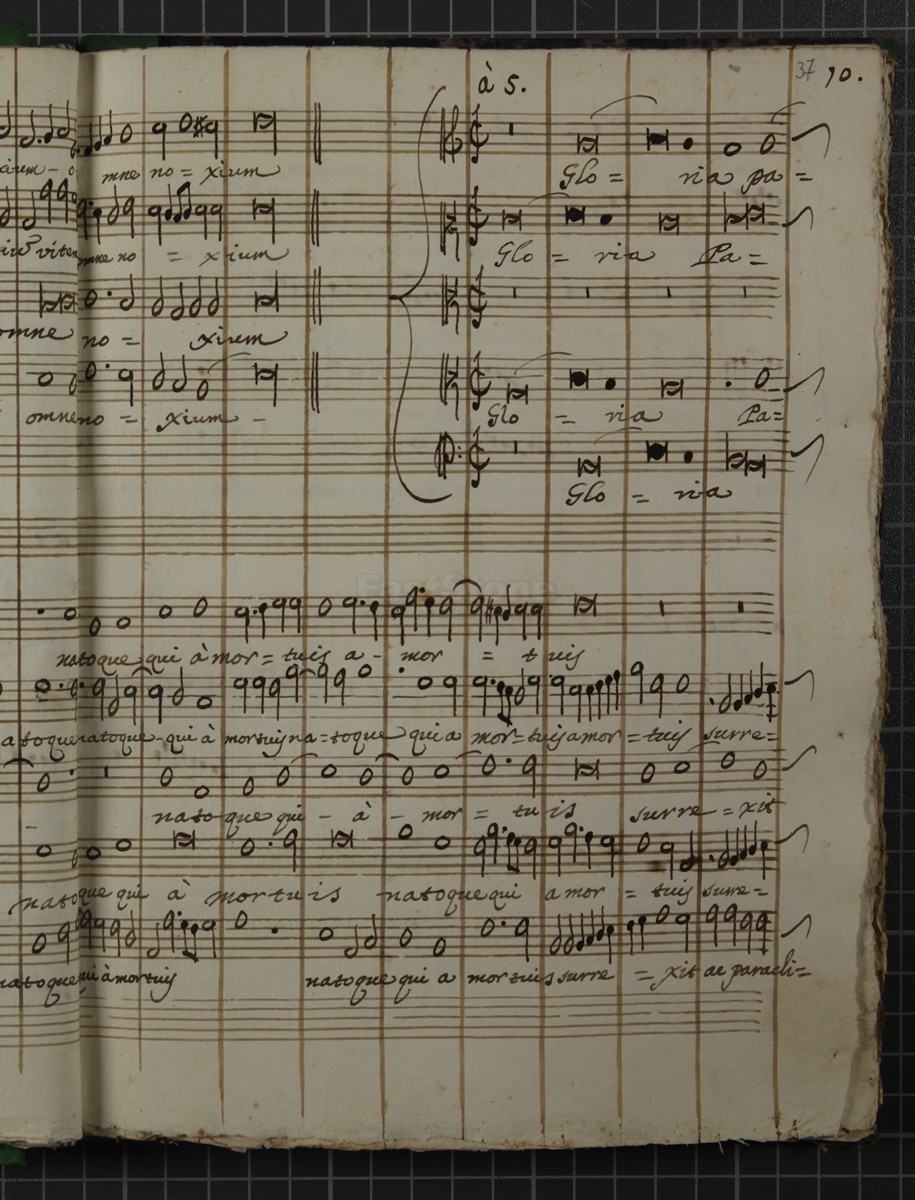 à 5.
37 70.
mne no = xium
Glo = ria pa =
no = xium
Glo = ria Pa =
omne no = xium
omne no = xium -
Glo = ria Pa =
Glo = ria
natoque qui à mor = tuis a - mor = tuis
atoque natoque - qui à mortuis na = toque qui a mor = tuis a mor = tuis surre =
natoque qui - à - mor = tuis surre = xit
natoque qui à mortuis natoque qui amor = tuis surre =
natoque qui à mortuis natoque qui a mortuis surre = xit ac paracli =